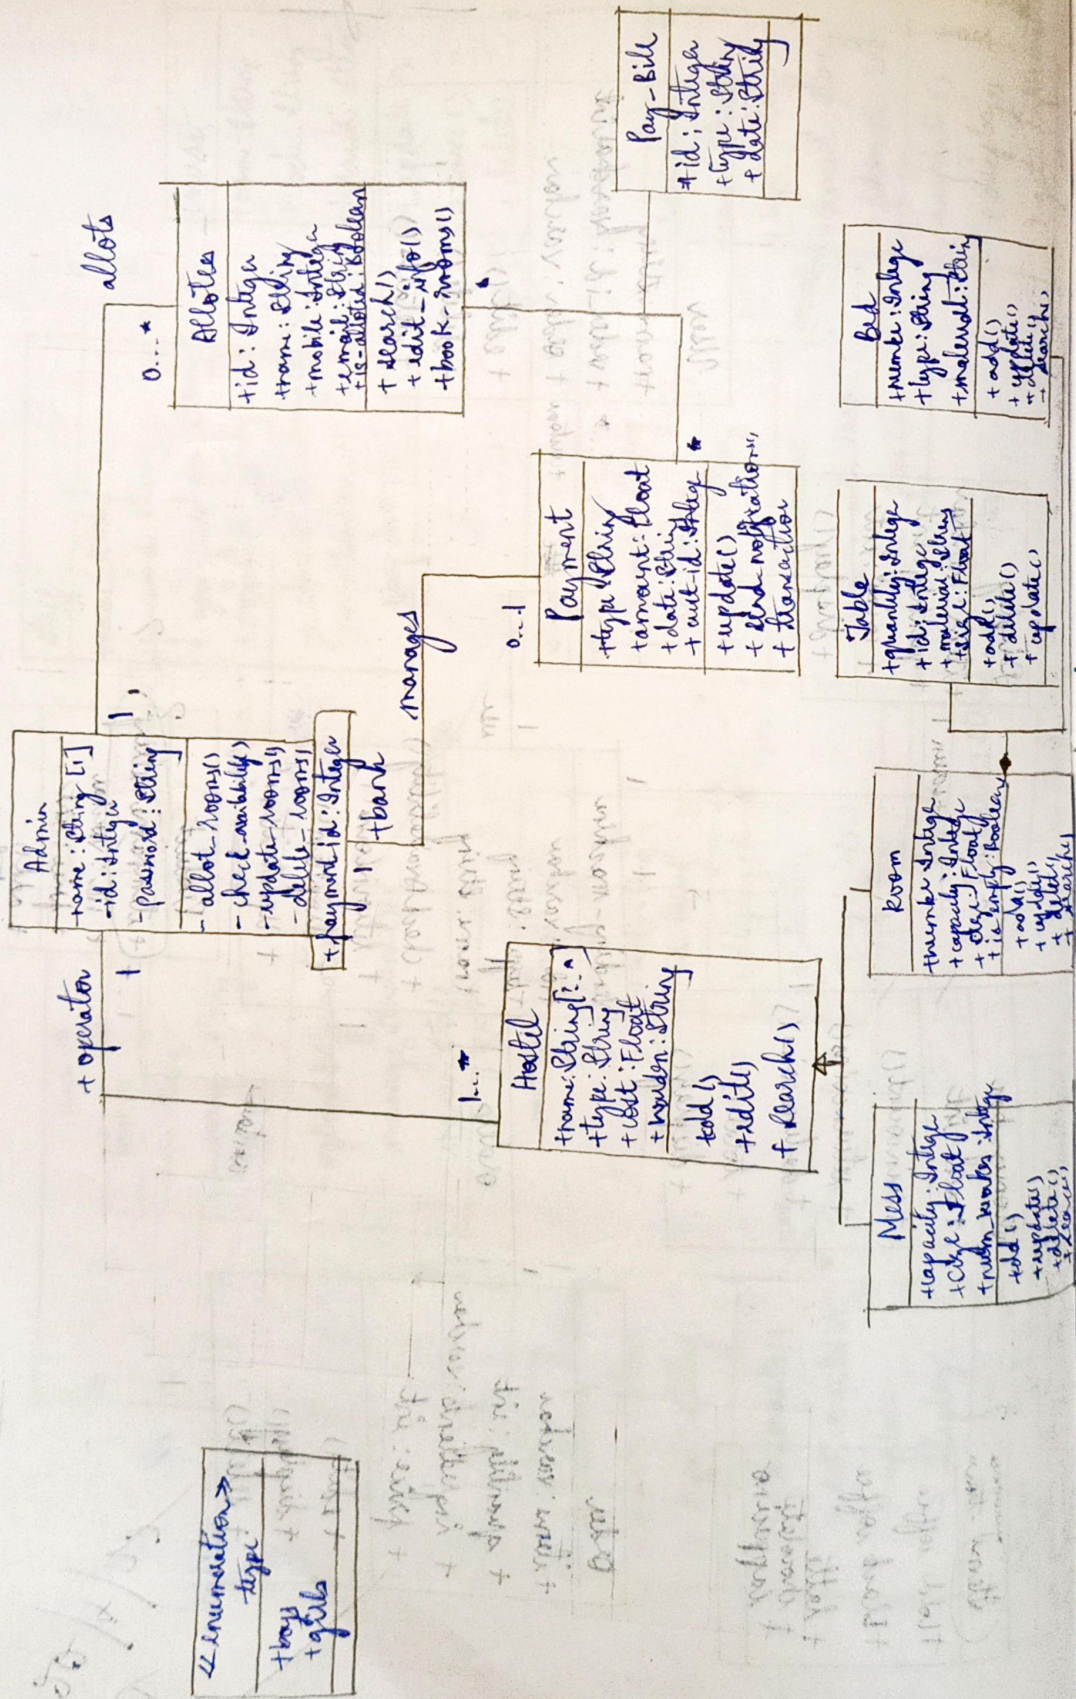 <<enumeration>>
type
+boys
+girls
+ operator
1
Admin
-name: String [1]
-id: Integer
-password: String
- allot-rooms()
- check-availability()
- update-rooms()
- delete-rooms()
+ payment id: Integer
1
+bank
1
allots
0...*
Allotes
+id: Integer
+name: String
+mobile: Integer
+email: String
+is-alloted: Boolean
+ search()
+ edit-info()
+book-rooms()
*
manages
0...1
Payment
+type: String
+amount: Float
+date: String
+ auct-id: Integer
+update()
+ send-notification()
+ transaction
*
Pay-Bill
+id: Integer
+type: String
+ date: String
1...*
Hostel
+name: String
+type: String
+ cost: Float
+ warden: String
+add()
+edit()
+ search()
Mess
+capacity: Integer
+size: Float
+num_workes: Integer
+add()
+update()
+delete()
Room
+number: Integer
+capacity: Integer
+ size: Float
+ is empty: Boolean
+ add()
+ update()
+ delete()
+ search()
Table
+quantity: Integer
+id: Integer
+material: String
+size: Float
+add()
+ delete()
+ update()
Bed
+number: Integer
+type: String
+material: String
+ add()
+ update()
+ delete()
+ search()